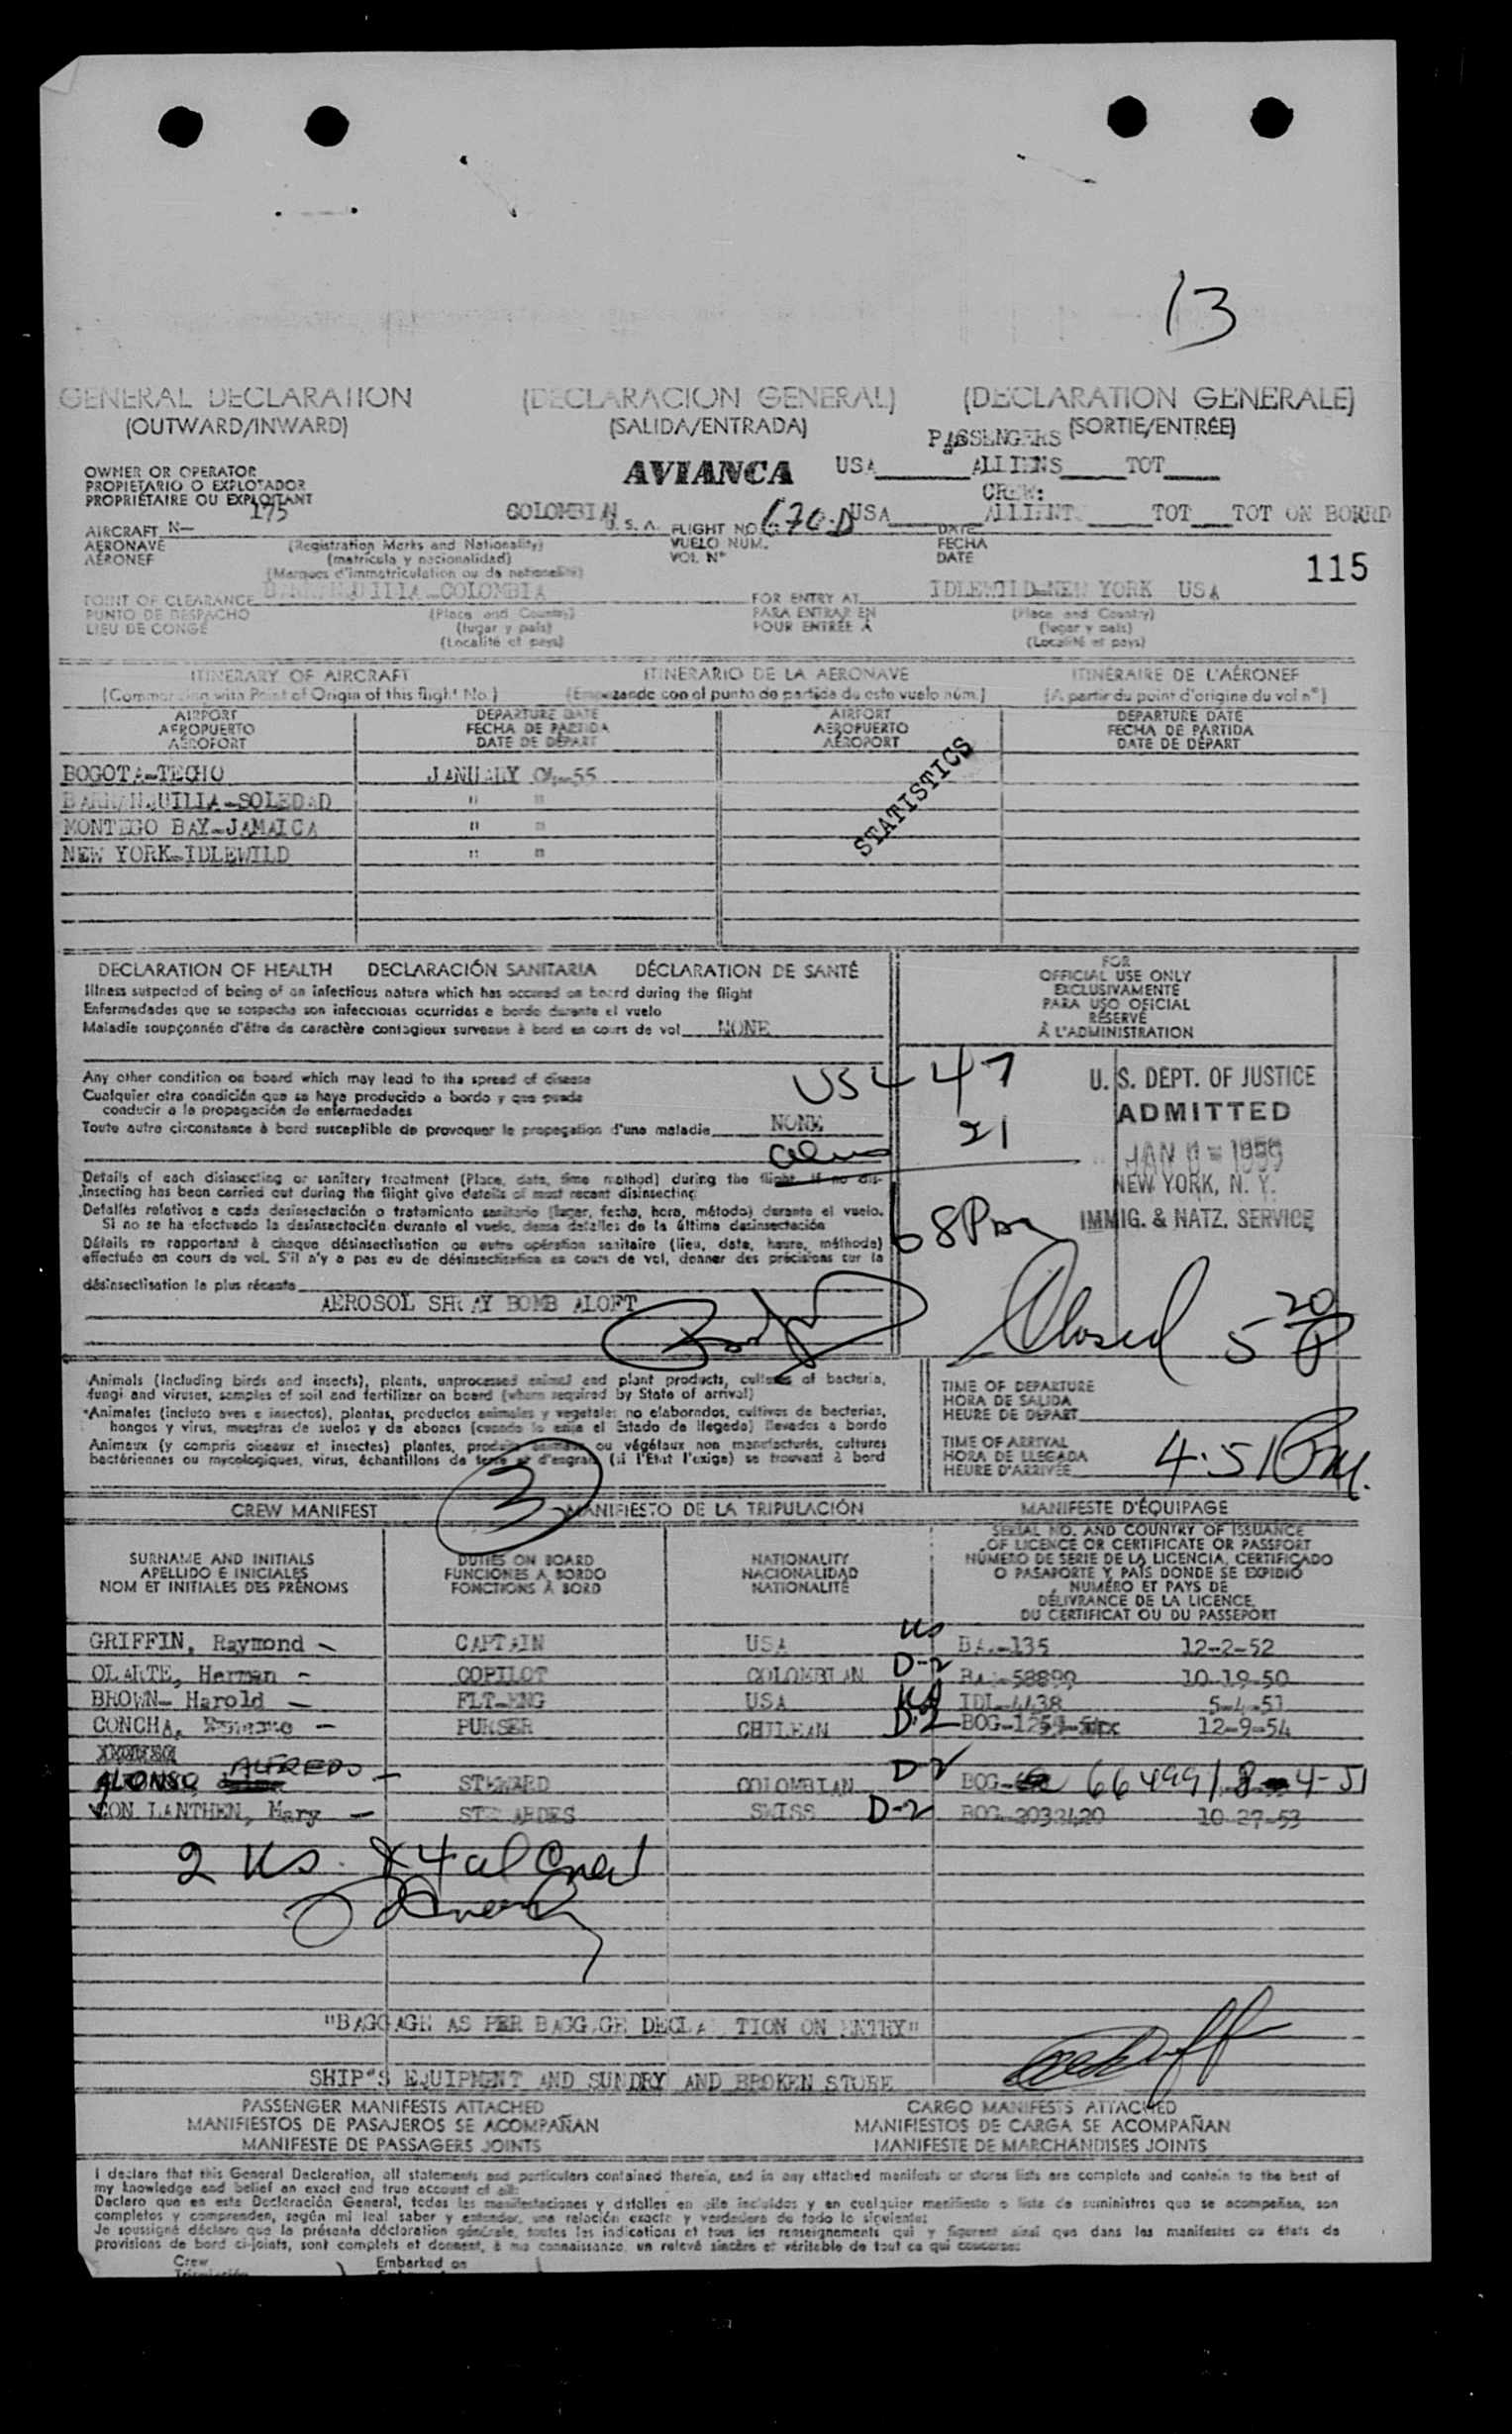 13
GENERAL DECLARATION (DECLARACION GENERAL) (DECLARATION GENERALE)
(OUTWARD/INWARD) (SALIDA/ENTRADA) (SORTIE/ENTRÉE)
PASSENGERS
OWNER OR OPERATOR AVIANCA USA ALLIENS TOT
PROPIETARIO O EXPLOTADOR
PROPRIÉTAIRE OU EXPLOITANT CREW:
175 COLOMBIAN 670-D USA ALLIENT TOT TOT ON BORRD
AIRCRAFT N— U.S.A. FLIGHT NO. DATE
AERONAVE (Registration Marks and Nationality) VUELO NUM. FECHA
AÉRONEF (matrícula y nacionalidad) VOL N° DATE 115
(Marques d'immatriculation ou de nationalité)
POINT OF CLEARANCE BARRANQUILLA-COLOMBIA FOR ENTRY AT IDLEWILD-NEW YORK USA
PUNTO DE DESPACHO (Place and Country) PARA ENTRAR EN (Place and Country)
LIEU DE CONGÉ (lugar y país) POUR ENTRÉE À (lugar y país)
(Localité et pays) (Localité et pays)
ITINERARY OF AIRCRAFT ITINERARIO DE LA AERONAVE ITINÉRAIRE DE L'AÉRONEF
(Commencing with Point of Origin of this flight No.) (Empezando con el punto de partida de este vuelo núm.) (A partir du point d'origine du vol n°)
AIRPORT DEPARTURE DATE AIRPORT DEPARTURE DATE
AEROPUERTO FECHA DE PARTIDA AEROPUERTO FECHA DE PARTIDA
AÉROPORT DATE DE DÉPART AÉROPORT DATE DE DÉPART
BOGOTA-TECHO JANUARY 04-55
BARRANQUILLA-SOLEDAD " "
MONTEGO BAY-JAMAICA " "
NEW YORK-IDLEWILD " "
STATISTICS
DECLARATION OF HEALTH DECLARACIÓN SANITARIA DÉCLARATION DE SANTÉ
Illness suspected of being of an infectious nature which has occured on board during the flight
Enfermedades que se sospecha son infecciosas ocurridas a bordo durante el vuelo
Maladie soupçonnée d'être de caractère contagieux survenue à bord en cours de vol NONE
FOR
OFFICIAL USE ONLY
EXCLUSIVAMENTE
PARA USO OFICIAL
RÉSERVÉ
À L'ADMINISTRATION
Any other condition on board which may lead to the spread of disease
Cualquier otra condición que se haya producido a bordo y que pueda
conducir a la propagación de enfermedades
Toute autre circonstance à bord susceptible de provoquer la propagation d'une maladie NONE
US 47
21
68 Pax
U. S. DEPT. OF JUSTICE
ADMITTED
JAN 1955
NEW YORK, N. Y.
IMMIG. & NATZ. SERVICE
Details of each disinsecting or sanitary treatment (Place, date, time method) during the flight. If no dis-
insecting has been carried out during the flight give details of most recent disinsecting
Detalles relativos a cada desinsectación o tratamiento sanitario (lugar, fecha, hora, método) durante el vuelo.
Si no se ha efectuado la desinsectación durante el vuelo, dense detalles de la última desinsectación
Détails se rapportant à chaque désinsectisation ou autre opération sanitaire (lieu, date, heure, méthode)
effectuée en cours de vol. S'il n'y a pas eu de désinsectisation en cours de vol, donner des précisions sur la
désinsectisation la plus récente
AEROSOL SPRAY BOMB ALOFT
Closed 5 20 P
Animals (Including birds and insects), plants, unprocessed animal and plant products, cultures of bacteria,
fungi and viruses, samples of soil and fertilizer on board (where required by State of arrival)
*Animales (incluso aves e insectos), plantas, productos animales y vegetales no elaborados, cultivos de bacterias,
hongos y virus, muestras de suelos y de abonos (cuando lo exija el Estado de llegada) llevados a bordo
Animaux (y compris oiseaux et insectes) plantes, produits animaux ou végétaux non manufacturés, cultures
bactériennes ou mycologiques, virus, échantillons de terre et d'engrais (si l'État l'exige) se trouvant à bord
TIME OF DEPARTURE
HORA DE SALIDA
HEURE DE DÉPART
TIME OF ARRIVAL
HORA DE LLEGADA
HEURE D'ARRIVÉE 4:51 Pm.
3
CREW MANIFEST MANIFIESTO DE LA TRIPULACIÓN MANIFESTE D'ÉQUIPAGE
SURNAME AND INITIALS DUTIES ON BOARD NATIONALITY
APELLIDO E INICIALES FUNCIONES A BORDO NACIONALIDAD
NOM ET INITIALES DES PRÉNOMS FONCTIONS À BORD NATIONALITÉ
SERIAL NO. AND COUNTRY OF ISSUANCE
OF LICENCE OR CERTIFICATE OR PASSPORT
NÚMERO DE SERIE DE LA LICENCIA, CERTIFICADO
O PASAPORTE Y PAÍS DONDE SE EXPIDIÓ
NUMÉRO ET PAYS DE
DÉLIVRANCE DE LA LICENCE,
DU CERTIFICAT OU DU PASSEPORT
GRIFFIN, Raymond - CAPTAIN USA US 135 12-2-52
OLARTE, Herman - COPILOT COLOMBIAN D-2 58899 10-19-50
BROWN- Harold - FLT-ENG USA US IDL-4438 5-4-51
CONCHA, - PURSER CHILEAN D-2 12-9-54
ALONSO, ALFREDO - STEWARD COLOMBIAN D-2 BOG- 664991 8-4-51
VON LANTHEN, Mary - STEWARDES SWISS D-2 BOG-2032420 10-27-53
2 US. & 4 al Crew
"BAGGAGE AS PER BAGGAGE DECLARATION ON ENTRY"
SHIP"S EQUIPMENT AND SUNDRY AND BROKEN STORE
PASSENGER MANIFESTS ATTACHED CARGO MANIFESTS ATTACHED
MANIFIESTOS DE PASAJEROS SE ACOMPAÑAN MANIFIESTOS DE CARGA SE ACOMPAÑAN
MANIFESTE DE PASSAGERS JOINTS MANIFESTE DE MARCHANDISES JOINTS
I declare that this General Declaration, all statements and particulars contained therein, and in any attached manifests or stores lists are complete and contain to the best of
my knowledge and belief an exact and true account of all:
Declaro que en esta Declaración General, todas las manifestaciones y detalles en ella incluidos y en cualquier manifiesto o lista de suministros que se acompañan, son
completos y comprenden, según mi leal saber y entender, una relación exacta y verdadera de todo lo siguiente:
Je soussigné déclare que la présente déclaration générale, toutes les indications et tous les renseignements qui y figurent ainsi que dans les manifestes ou états de
provisions de bord ci-joints, sont complets et donnent, à ma connaissance, un relevé sincère et véritable de tout ce qui concerne:
Crew Embarked on